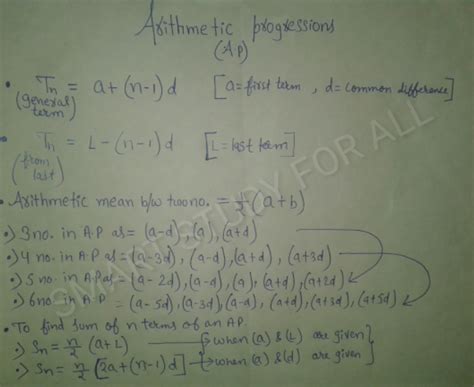 Arithmetic progressions
(A.P)
• Tn = a + (n-1) d [a = first term , d = common difference]
(general term)
• Tn = L - (n-1) d [L = last term]
(from last)
• Arithmetic mean b/w two no. = 1/2 (a+b)
•) 3 no. in A.P as = (a-d), (a), (a+d)
•) 4 no. in A.P as = (a-3d), (a-d), (a+d), (a+3d)
•) 5 no. in A.P as = (a-2d), (a-d), (a), (a+d), (a+2d)
•) 6 no. in A.P = (a-5d), (a-3d), (a-d), (a+d), (a+3d), (a+5d)
• To find sum of n terms of an A.P.
•) Sn = n/2 (a+L) → when (a) & (L) are given
•) Sn = n/2 [2a + (n-1)d] → when (a) & (d) are given
SMART STUDY FOR ALL